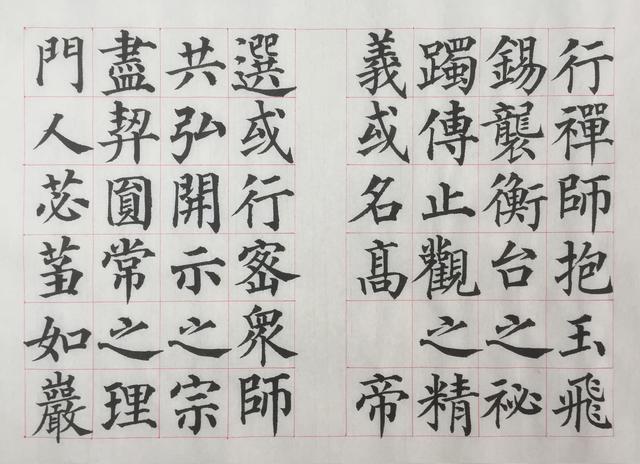 行禪師抱玉飛
錫襲衡台之祕
躅傳止觀之精
義或名高 帝
選或行密衆師
共弘開示之宗
盡契圓常之理
門人苾蒭如巖